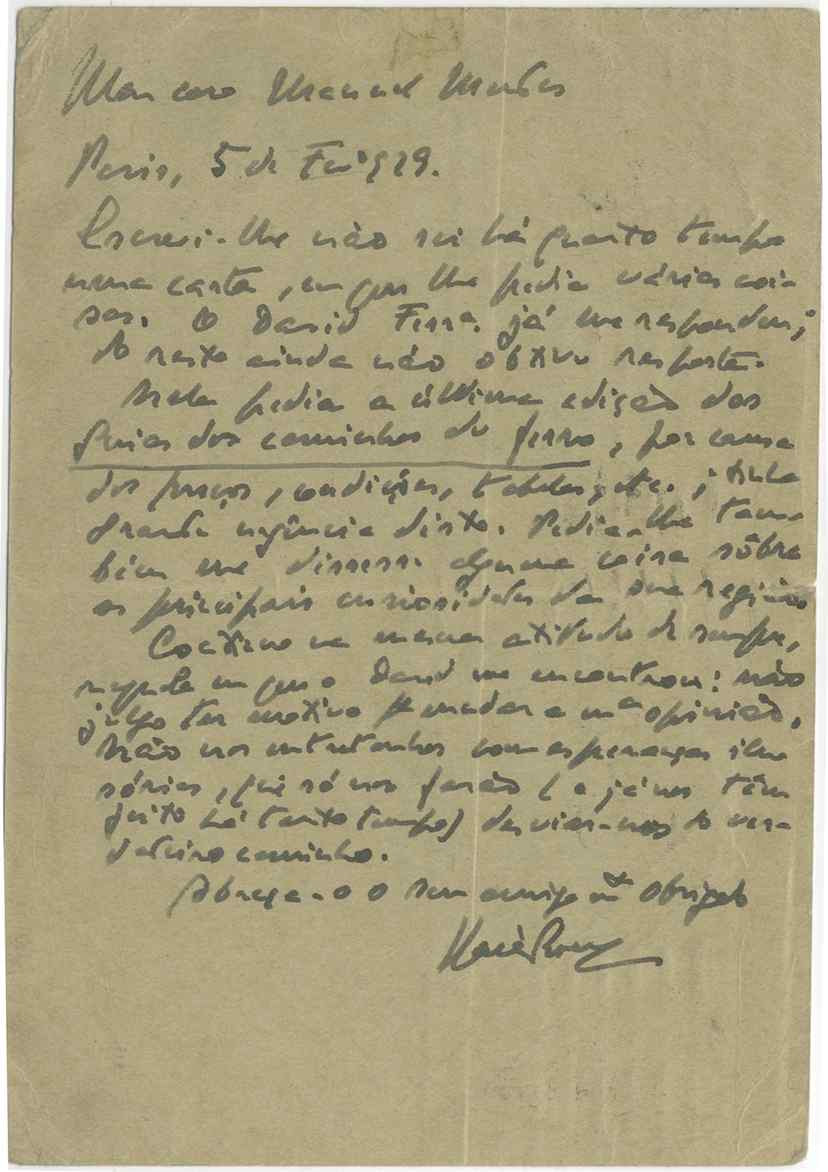 Meu caro Manuel Mendes
Paris, 5 de 929.
Escrevi-lhe não sei há quanto tempo
uma carta, em que lhe pedia várias coi-
sas. O David Ferrª. já me respondeu;
do resto ainda não obtive resposta.
Nela pedia a última edição dos
Guias dos caminhos de ferro, por causa
dos preços, condições, tabelas, etc.; tinha
grande urgência disto. Pedia-lhe tam-
bém me dissesse alguma coisa sôbre
as principais curiosidades da sua região
Continuo na mesma atitude de sempre,
naquela em que o David me encontrou: não
julgo ter motivo pª mudar a mª opinião.
Não nos entretenhamos com esperanças ilu
sórias, que só nos farão (e já nos têm
feito há tanto tempo) desviar-nos do ver-
dadeiro caminho.
Abraça-o o seu amigo mto obrigado